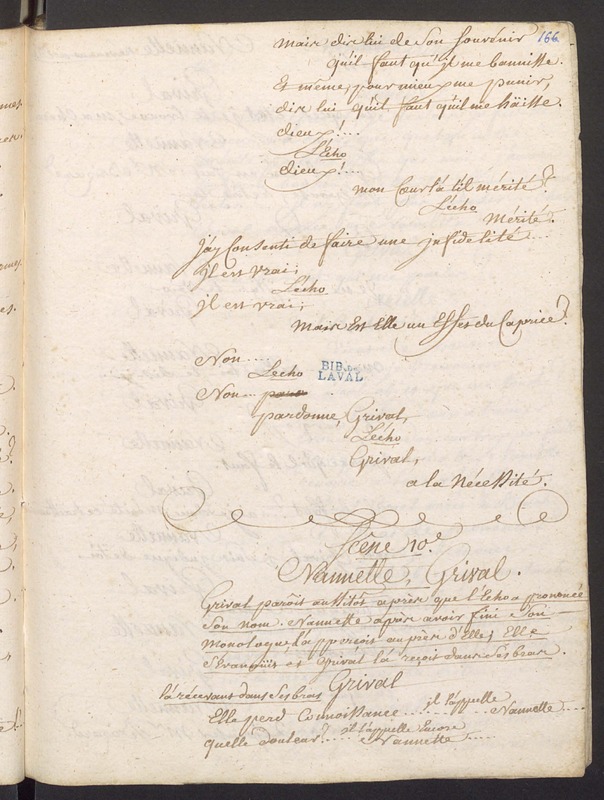 166
mais dis lui de son souvenir
qu'il faut qu'il me bannisse.
Et même, pour mieux me punir,
dis lui qu'il faut qu'il me häisse.
dieux!...
L'Echo
dieux!...
mon Cœur l'a t'il mérité?
L'écho
mérité.
J'ay Consenti de faire une jnfidélité....
jl est vrai;
L'écho
jl est vrai;
mais Est Elle un Effet du Caprice?
Non.....
L'echo
BIB. DE
LAVAL
Non...
pardonne, Grival,
L'écho
Grival,
a la Nécessité.
Scêne 10.e
Nannette, Grival.
Grival parôit aussitôt après que l'Echo a prononcé
son nom. Nannette après avoir fini son
monologue, l'apperçoit auprès d'Elle; Elle
s'évanoüit et Grival la reçoit dans ses bras.
la recevant dans ses bras Grival
Elle perd Connoissance....... jl l'appelle Nannette.....
quelle douleur!... jl l'appelle Encore Nannette.....